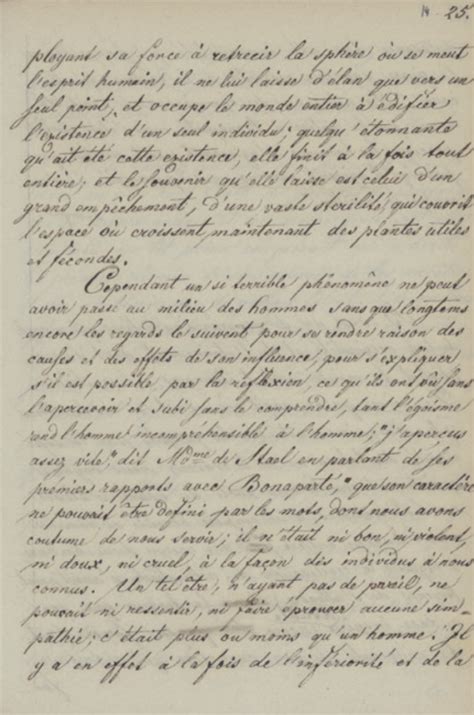 14 25.
ployant sa force à retrecir la sphère où se meut
l'esprit humain, il ne lui laisse d'élan que vers un
seul point, et occupe le monde entier à édifier
l'existence d'un seul individu; quelqu'étonnante
qu'ait été cette existence, elle finit à la fois tout
entière; et le souvenir qu'elle laisse est celui d'un
grand empêchement, d'une vaste sterilité qui couvroit
l'espace où croissent maintenant des plantes utiles
et fécondes.
Cependant un si terrible phénomène ne peut
avoir passé au milieu des hommes sans que longtems
encore les regards le suivent pour se rendre raison des
causes et des effets de son influence, pour s'expliquer
s'il est possible par la réflexion, ce qu'ils ont vu sans
l'apercevoir et subi sans le comprendre, tant l'égoisme
rend l'homme incompréhensible à l'homme; "j'aperçus
assez vite," dit Mdme de Stael en parlant de ses
premiers rapports avec Bonaparte, "que son caractère
ne pouvait être defini par les mots, dont nous avons
coutume de nous servir; il n'était ni bon, ni violent,
ni doux, ni cruel, à la façon des individus à nous
connus. Un tel être, n'ayant pas de pareil, ne
pouvait ni ressentir, ni faire éprouver aucune sim-
pathie; c'était plus ou moins qu'un homme. Il
y a en effet à la fois de l'infériorité et de la